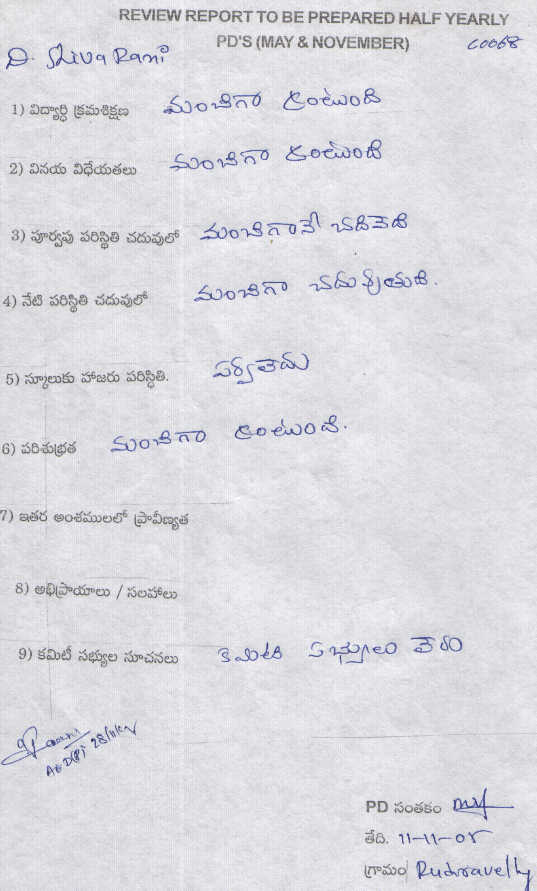 REVIEW REPORT TO BE PREPARED HALF YEARLY
PD'S (MAY & NOVEMBER) C0068
D. Shiva Rani
1) విద్యార్థి క్రమశిక్షణ మంచిగా ఉంటుంది
2) వినయ విధేయతలు మంచిగా ఉంటుంది
3) పూర్వపు పరిస్థితి చదువులో మంచిగానే చదివేది
4) నేటి పరిస్థితి చదువులో మంచిగా చదువుతుది.
5) స్కూలుకు హాజరు పరిస్థితి.
6) పరిశుభ్రత మంచిగా ఉంటుంది.
7) ఇతర అంశములలో ప్రావీణ్యత
8) అభిప్రాయాలు / సలహాలు
9) కమిటీ సభ్యుల సూచనలు కమిటి సభ్యులు లేరు
PD సంతకం
తేది. 11-11-05
గ్రామం Rudravelly